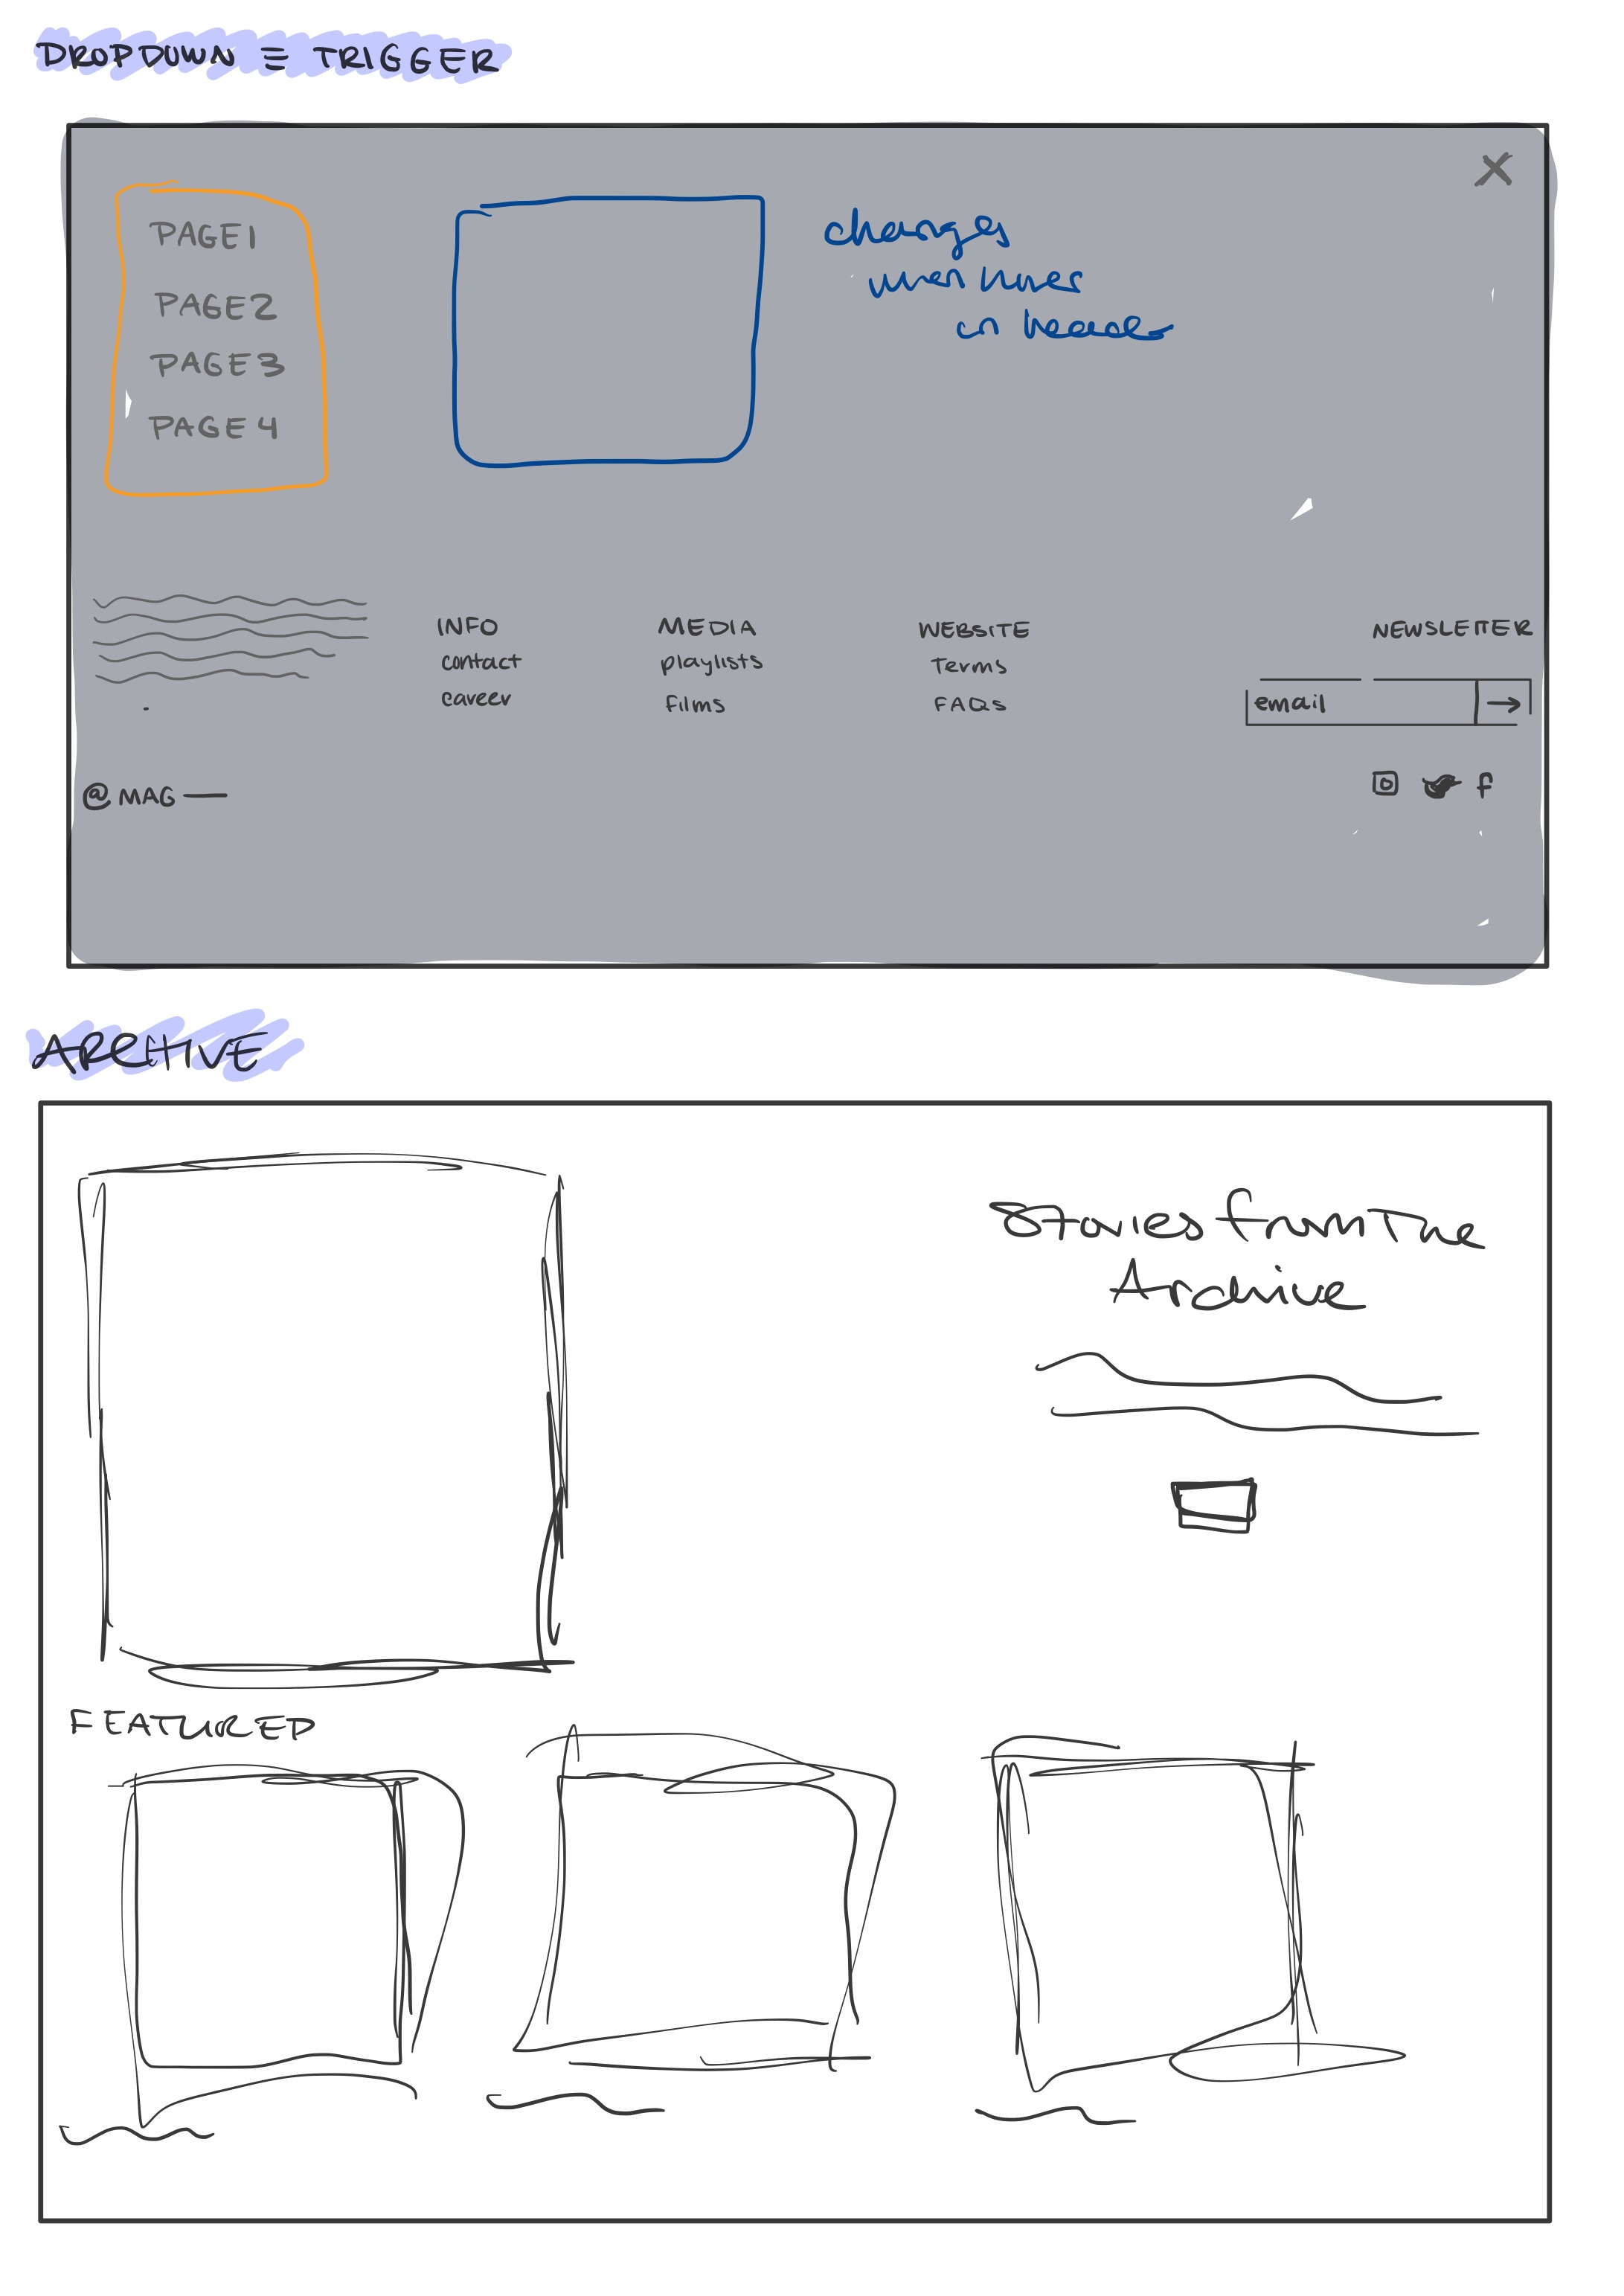 DROPDOWN ≡ TRIGGER
X
PAGE 1
PAGE 2
PAGE 3
PAGE 4
changes
when hover
on
INFO
contact
career
MEDIA
playlists
films
WEBSITE
Terms
FAQs
NEWSLETTER
email →
@ MAG
f
ARCHIVE
Stories from The
Archive
FEATURED